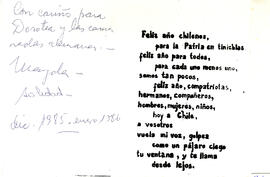 Con cariño para
Dorotea y las cama
radas alemanas.-
Mayola -
soledad -
dic. 1985. enero 1986
Feliz año chilenos,
para la Patria en tinieblas
feliz año para todos,
para cada uno menos uno,
somos tan pocos,
feliz año, compatriotas,
hermanos, compañeros,
hombres, mujeres, niños,
hoy a Chile,
a vosotros
vuela mi voz, golpea
como un pájaro ciego
tu ventana, y te llama
desde lejos.